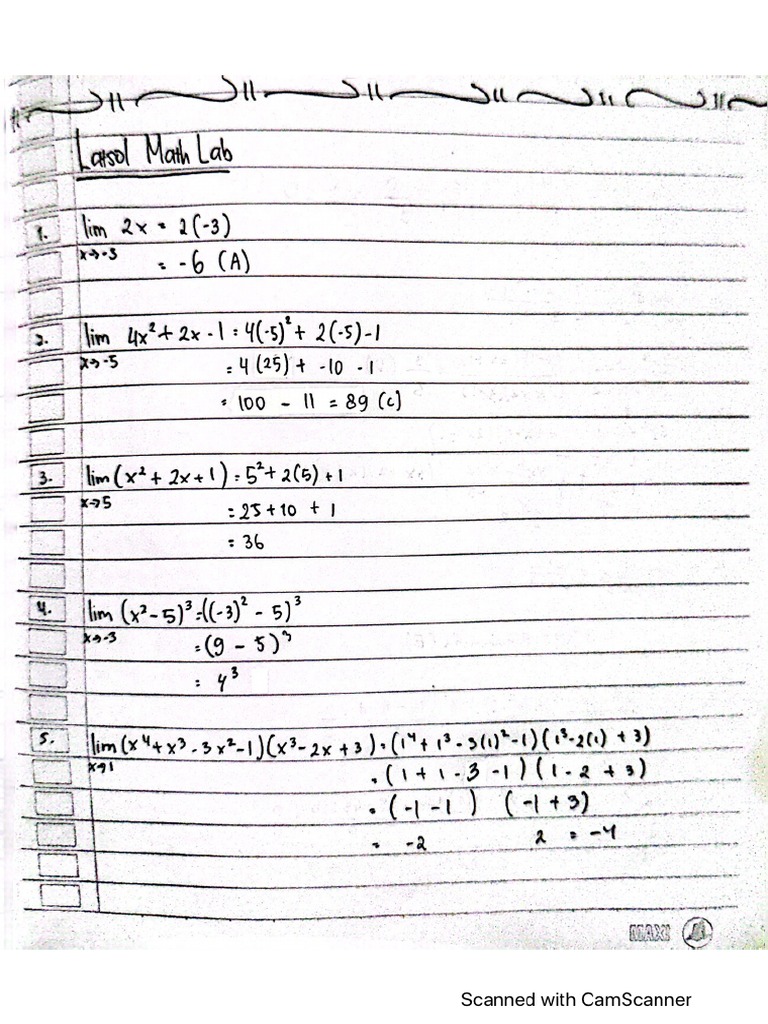 Latsol Math Lab
1. lim 2x = 2(-3)
x→-3 = -6 (A)
2. lim 4x² + 2x - 1 = 4(-5)² + 2(-5) - 1
x→-5 = 4(25) + -10 - 1
= 100 - 11 = 89 (C)
3. lim (x² + 2x + 1) = 5² + 2(5) + 1
x→5 = 25 + 10 + 1
= 36
4. lim (x² - 5)³ = ((-3)² - 5)³
x→-3 = (9 - 5)³
= 4³
5. lim (x⁴ + x³ - 3x² - 1)(x³ - 2x + 3) = (1⁴ + 1³ - 3(1)² - 1)(1³ - 2(1) + 3)
x→1 = (1 + 1 - 3 - 1)(1 - 2 + 3)
= (-1 - 1) (-1 + 3)
= -2 2 = -4
MAXI
Scanned with CamScanner